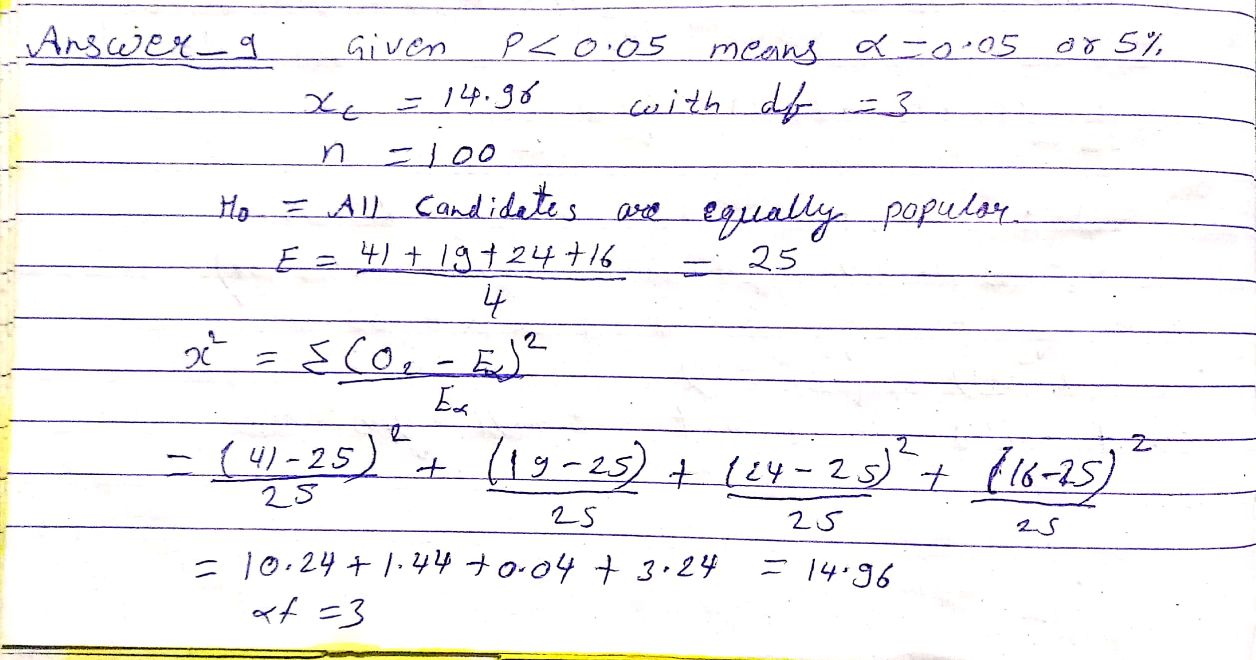 Answer-9 Given P < 0.05 means α = 0.05 or 5%
x_c = 14.96 with df = 3
n = 100
H₀ = All Candidates are equally popular.
E = 41 + 19 + 24 + 16 / 4 = 25
x² = Σ (O₂ - E₂)² / E₂
= (41-25)² / 25 + (19-25) / 25 + (24-25)² / 25 + (16-25)² / 25
= 10.24 + 1.44 + 0.04 + 3.24 = 14.96
df = 3